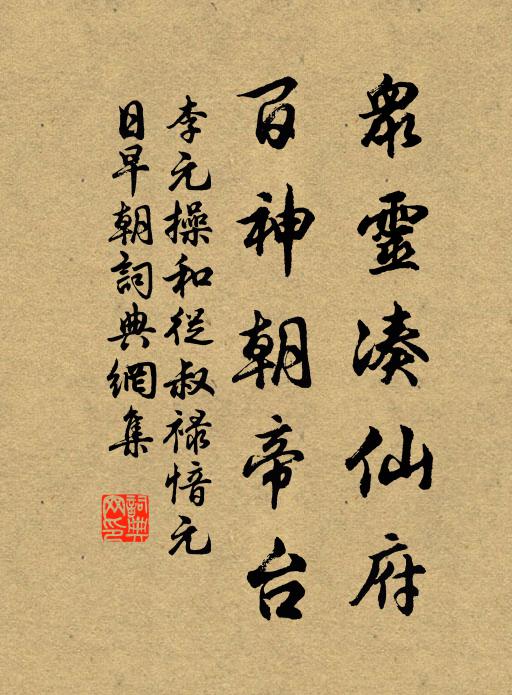 眾靈湊仙府
百神朝帝台
李元操和從叔祿愔元
日早朝詞典網集
詞典网印